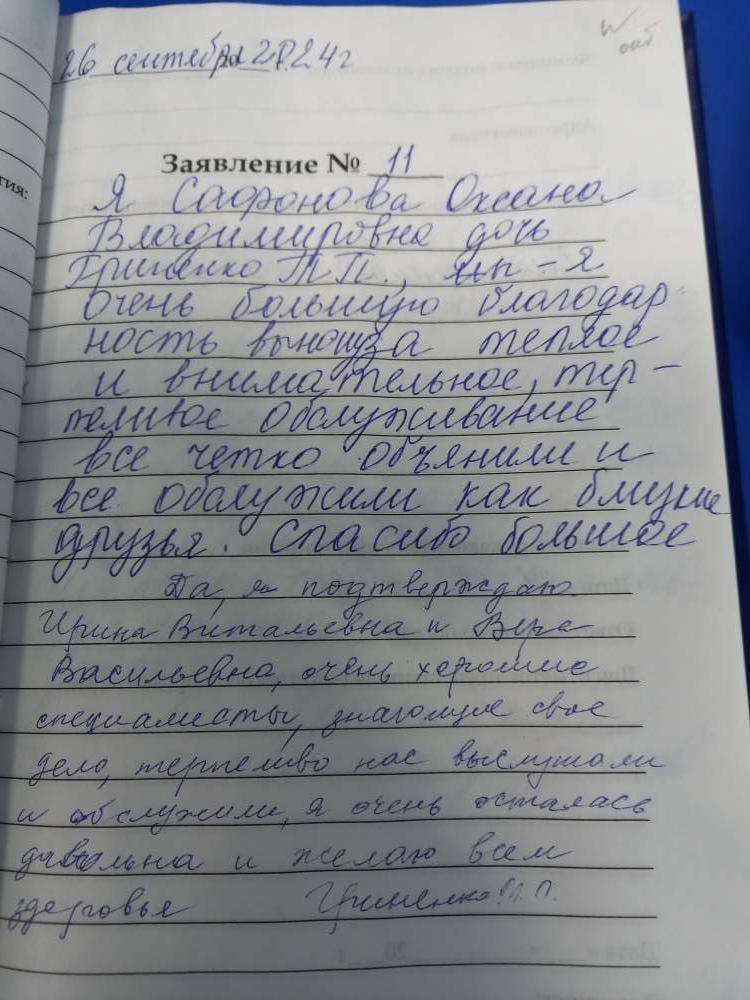 26 сентября 2024г
Заявление № 11
Я Сафонова Оксана
Владимировна дочь
Гриненко Т.П., мы - я
очень большую благодар
ность выношу за теплое
и внимательное, тер-
пеливое обслуживание
все четко объянили и
все обслужили как близкие
друзья. Спасибо большое
Да, я подтверждаю
Ирина Витальевна и Вера
Васильевна, очень хорошие
специалисты, знающие свое
дело, терпеливо нас выслушали
и обслужили, я очень осталась
довольна и желаю всем
здоровья Гриненко Т.П.
тия: